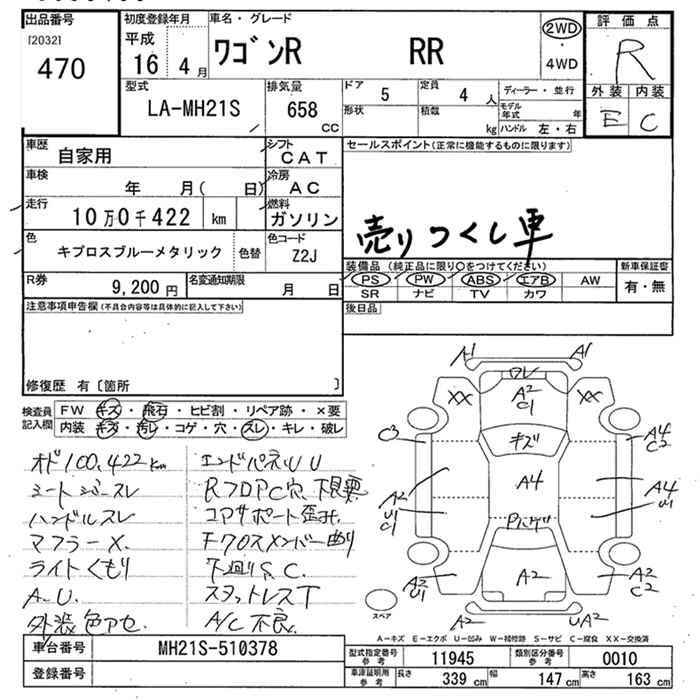 出品番号
[2032]
470
初度登録年月
平成
16 年 4 月
車名・グレード
ワゴンR RR
2WD
・
4WD
評価点
R
外装 内装
E C
型式
LA-MH21S
排気量
658 CC
ドア 5
定員 4 人
形状
積載 kg
ディーラー・並行
モデル年式 年
ハンドル 左・右
車歴
自家用
シフト
CAT
車検
年 月( 日)
冷房
AC
走行
10万0千422 km
燃料
ガソリン
色
キプロスブルーメタリック
色替
色コード
Z2J
R券
9,200 円
名変通知期限
月 日
セールスポイント(正常に機能するものに限ります)
売りつくし車
装備品(純正品に限り○をつけてください)
PS PW ABS エアB AW
SR ナビ TV カワ
新車保証書
有・無
後日品
注意事項申告欄(不具合内容等は具体的に記入して下さい)
修復歴 有〔箇所 〕
検査員記入欄
FW キズ・飛石・ヒビ割・リペア跡・×要
内装 キズ・汚レ・コゲ・穴・スレ・キレ・破レ
オド100,422km
シートシワ・スレ
ハンドルスレ
マフラーX.
ライトくもり
A.U.
外装色アセ.
エンドパネルU
RフロアC穴,下根要
コアサポート歪み.
Fクロスメンバー曲り
下廻りS.C.
スタットレスT
A/C不良.
A1 A1
ワレ
XX A2 C1 XX
キズ
C3 A4 C2
A4
A2 U1 C1 A4 U1
Pハゲ
A2 U1 A2 A2 C2
A2 UA2
スペア
A-キズ E-エクボ U-凹み W-補修跡 S-サビ C-腐食 XX-交換済
車台番号
MH21S-510378
登録番号
型式指定番号 参考
11945
類別区分番号 参考
0010
車庫証明用 参考
長さ 339 cm
幅 147 cm
高さ 163 cm